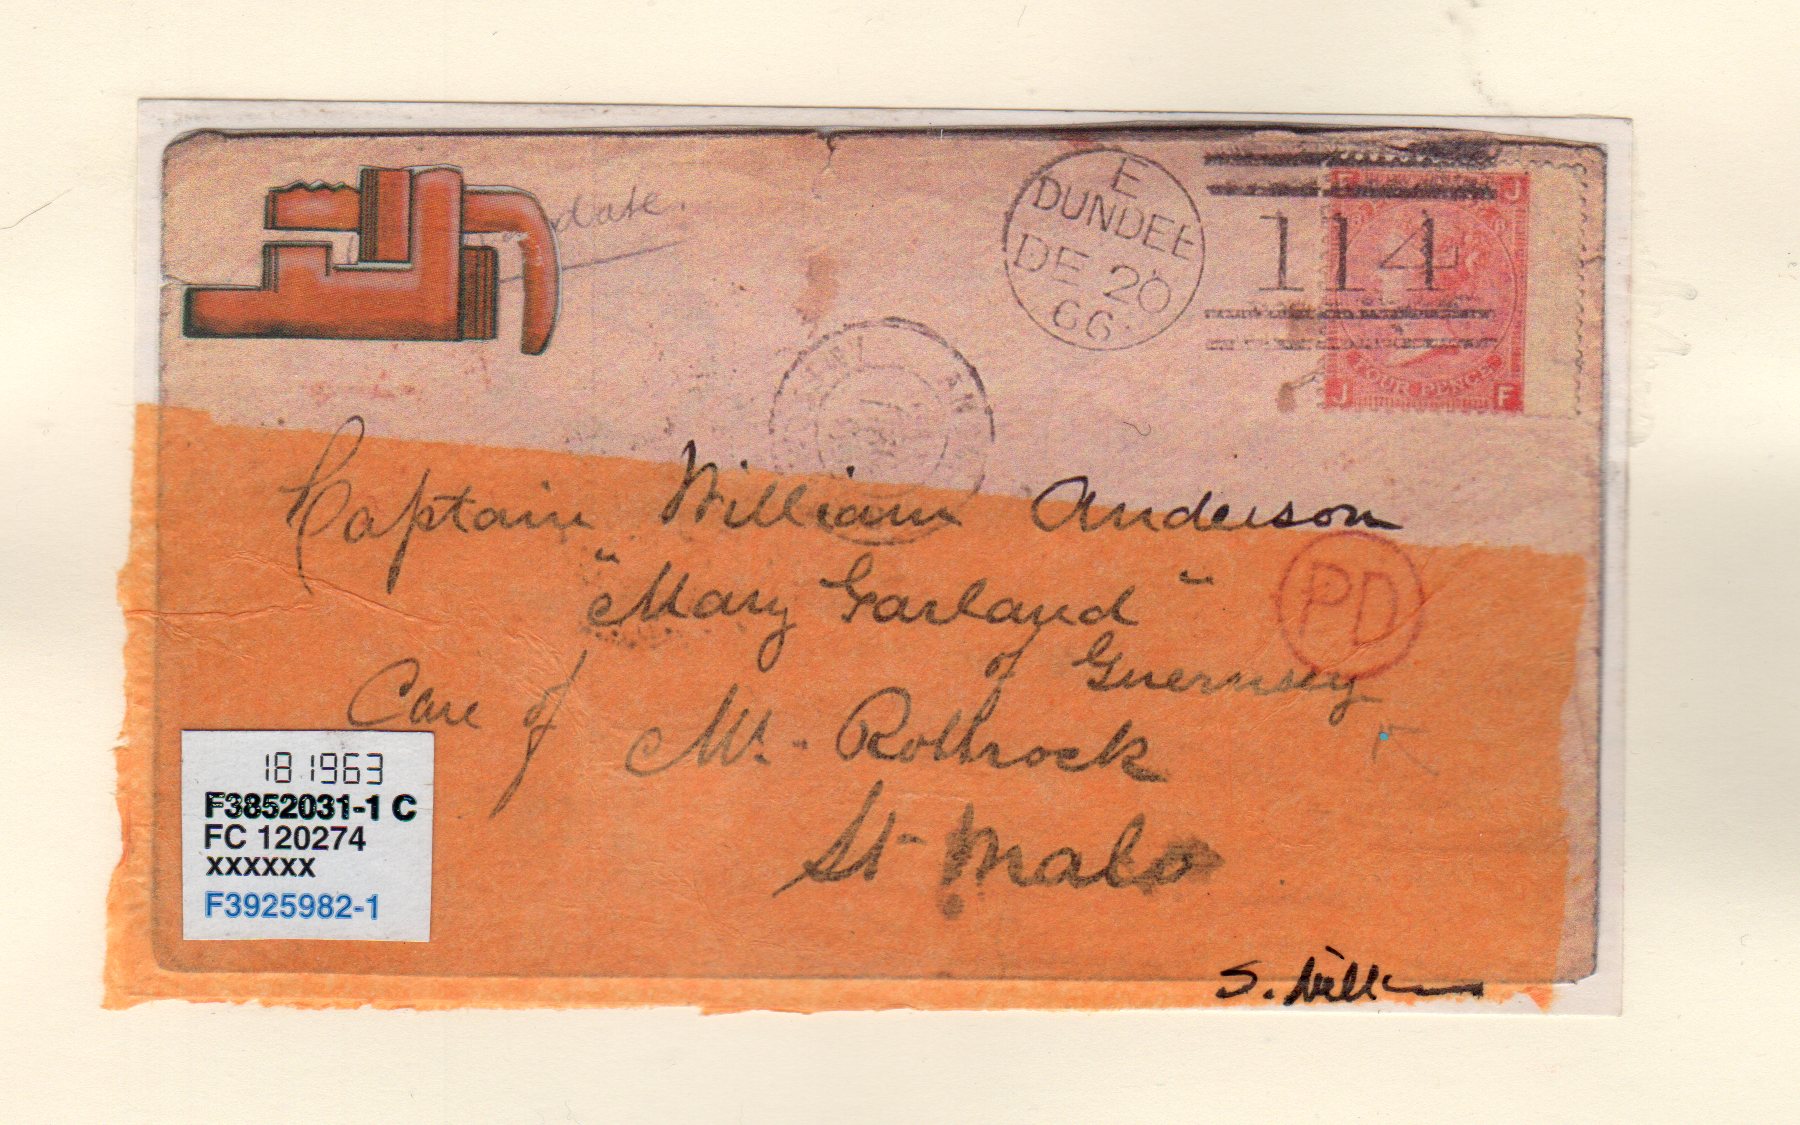 date.
E
DUNDEE
DE 20
66
114
F J
FOUR PENCE
J F
Captain William Anderson
"Mary Garland"
of Guernsey
PD
Care of Mr. Rothrock
St. Malo
18 1963
F3852031-1 C
FC 120274
xxxxxx
F3925982-1
S.